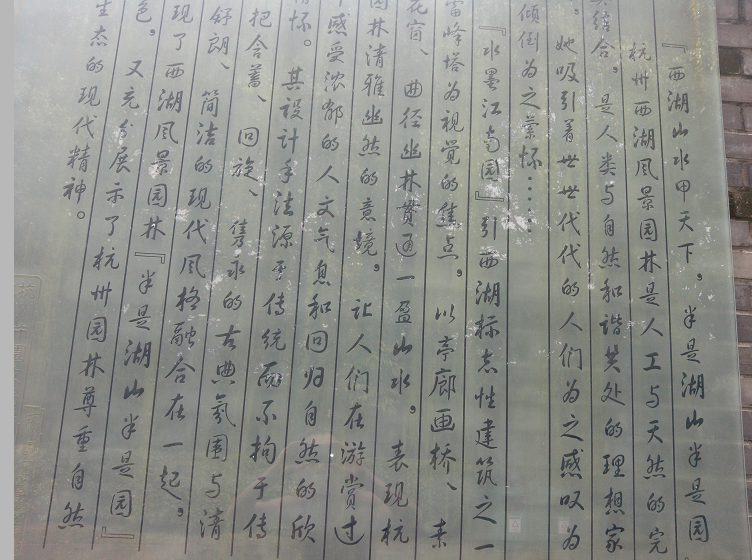 『西湖山水甲天下，半是湖山半是园
杭州西湖风景园林是人工与天然的完
美结合，是人类与自然和谐共处的理想家
。她吸引着世世代代的人们为之感叹为
倾倒为之萦怀……
『水墨江南园』引西湖标志性建筑之一
雷峰塔为视觉的焦点，以亭廊画桥、素
花窗、曲径幽林贯通一盈山水，表现杭
园林清雅幽然的意境，让人们在游赏过
中感受浓郁的人文气息和回归自然的欣
情怀。其设计手法源于传统而不拘于传
把含蓄、回旋、隽永的古典氛围与清
舒朗、简洁的现代风格融合在一起，
现了西湖风景园林『半是湖山半是园』
色，又充分展示了杭州园林尊重自然
生态的现代精神。